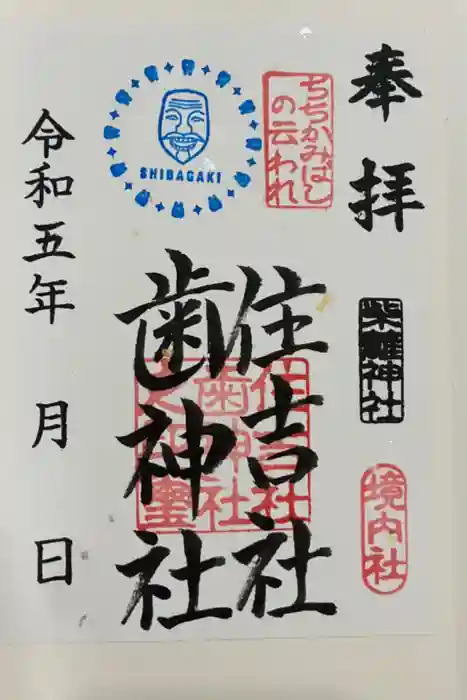 奉拝
柴籬神社
境内社
ちちかみばし
の云われ
SHIBAGAKI
住吉社
歯神社
住吉社
歯神社
之印璽
令和五年 月 日